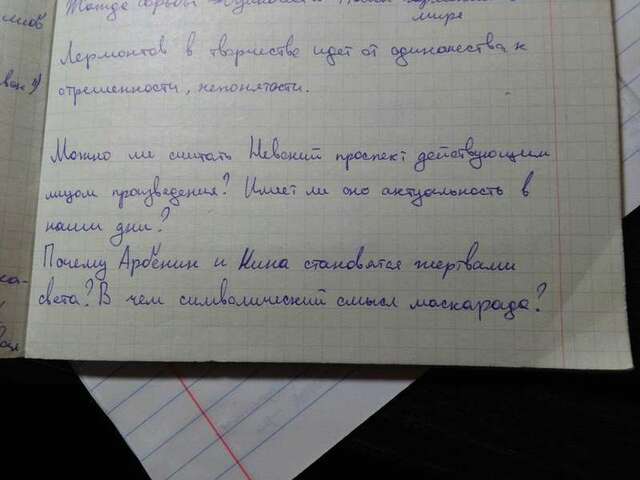 Жажда борьбы
мире
Лермонтов в творчестве идет от одиночества к
отрешенности, непонятости.
Можно ли считать Невский проспект действующим
лицом произведения? Имеет ли оно актуальность в
наши дни?
Почему Арбенин и Нина становятся жертвами
света? В чем символический смысл маскарада?